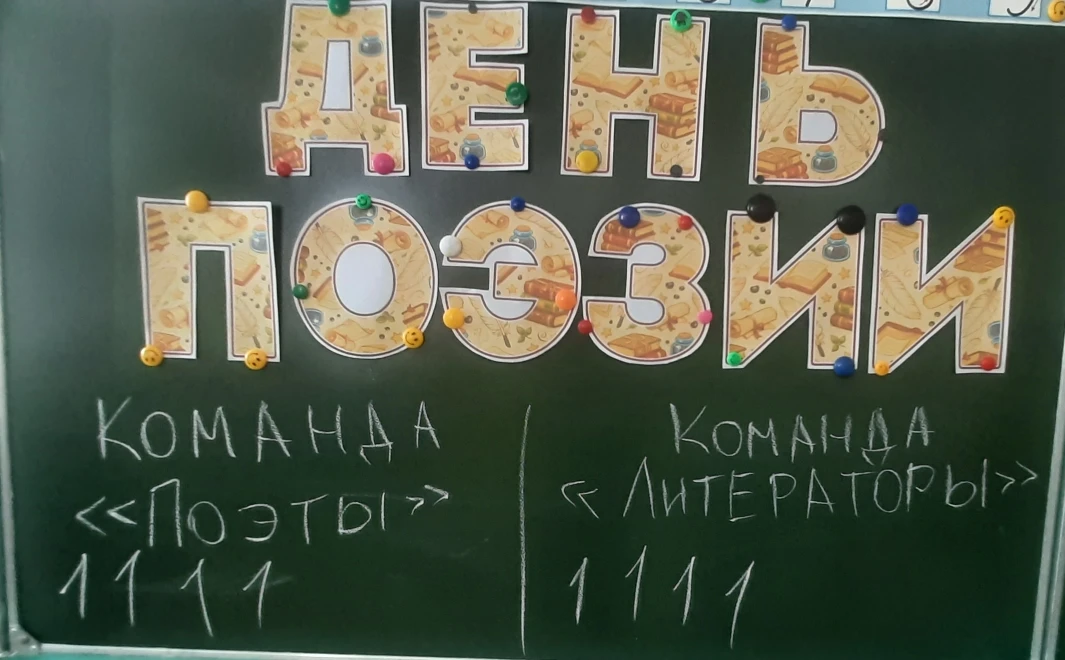 ДЕНЬ
ПОЭЗИИ
КОМАНДА
«ПОЭТЫ»
1 1 1 1
КОМАНДА
«ЛИТЕРАТОРЫ»
1 1 1 1